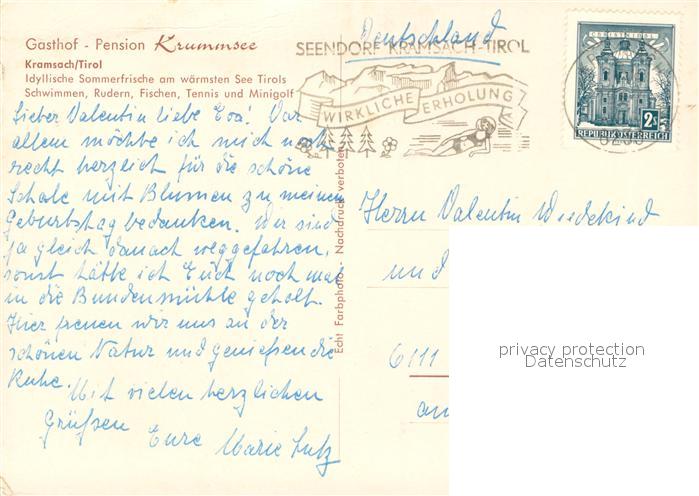 Gasthof - Pension Krummsee
Kramsach/Tirol
Idyllische Sommerfrische am wärmsten See Tirols
Schwimmen, Rudern, Fischen, Tennis und Minigolf
Lieber Valentin liebe Eva! Vor
allem möchte ich mich noch
recht herzlich für die schöne
Schale mit Blumen zu meinem
Geburtstag bedanken. Wir sind
ja gleich danach weggefahren,
sonst hätte ich Euch noch mal
in die Bundenmühle geholt.
Hier freuen wir uns an der
schönen Natur und genießen die
Ruhe.
Mit vielen herzlichen
Grüßen
Eure Marie Lutz
Echt Farbphoto - Nachdruck verboten
Deutschland
SEENDORF KRAMSACH-TIROL
WIRKLICHE ERHOLUNG
CHRISTKINDL
2S
REPUBLIK ÖSTERREICH
Herrn Valentin Wiedekind
und
6111
privacy protection
Datenschutz